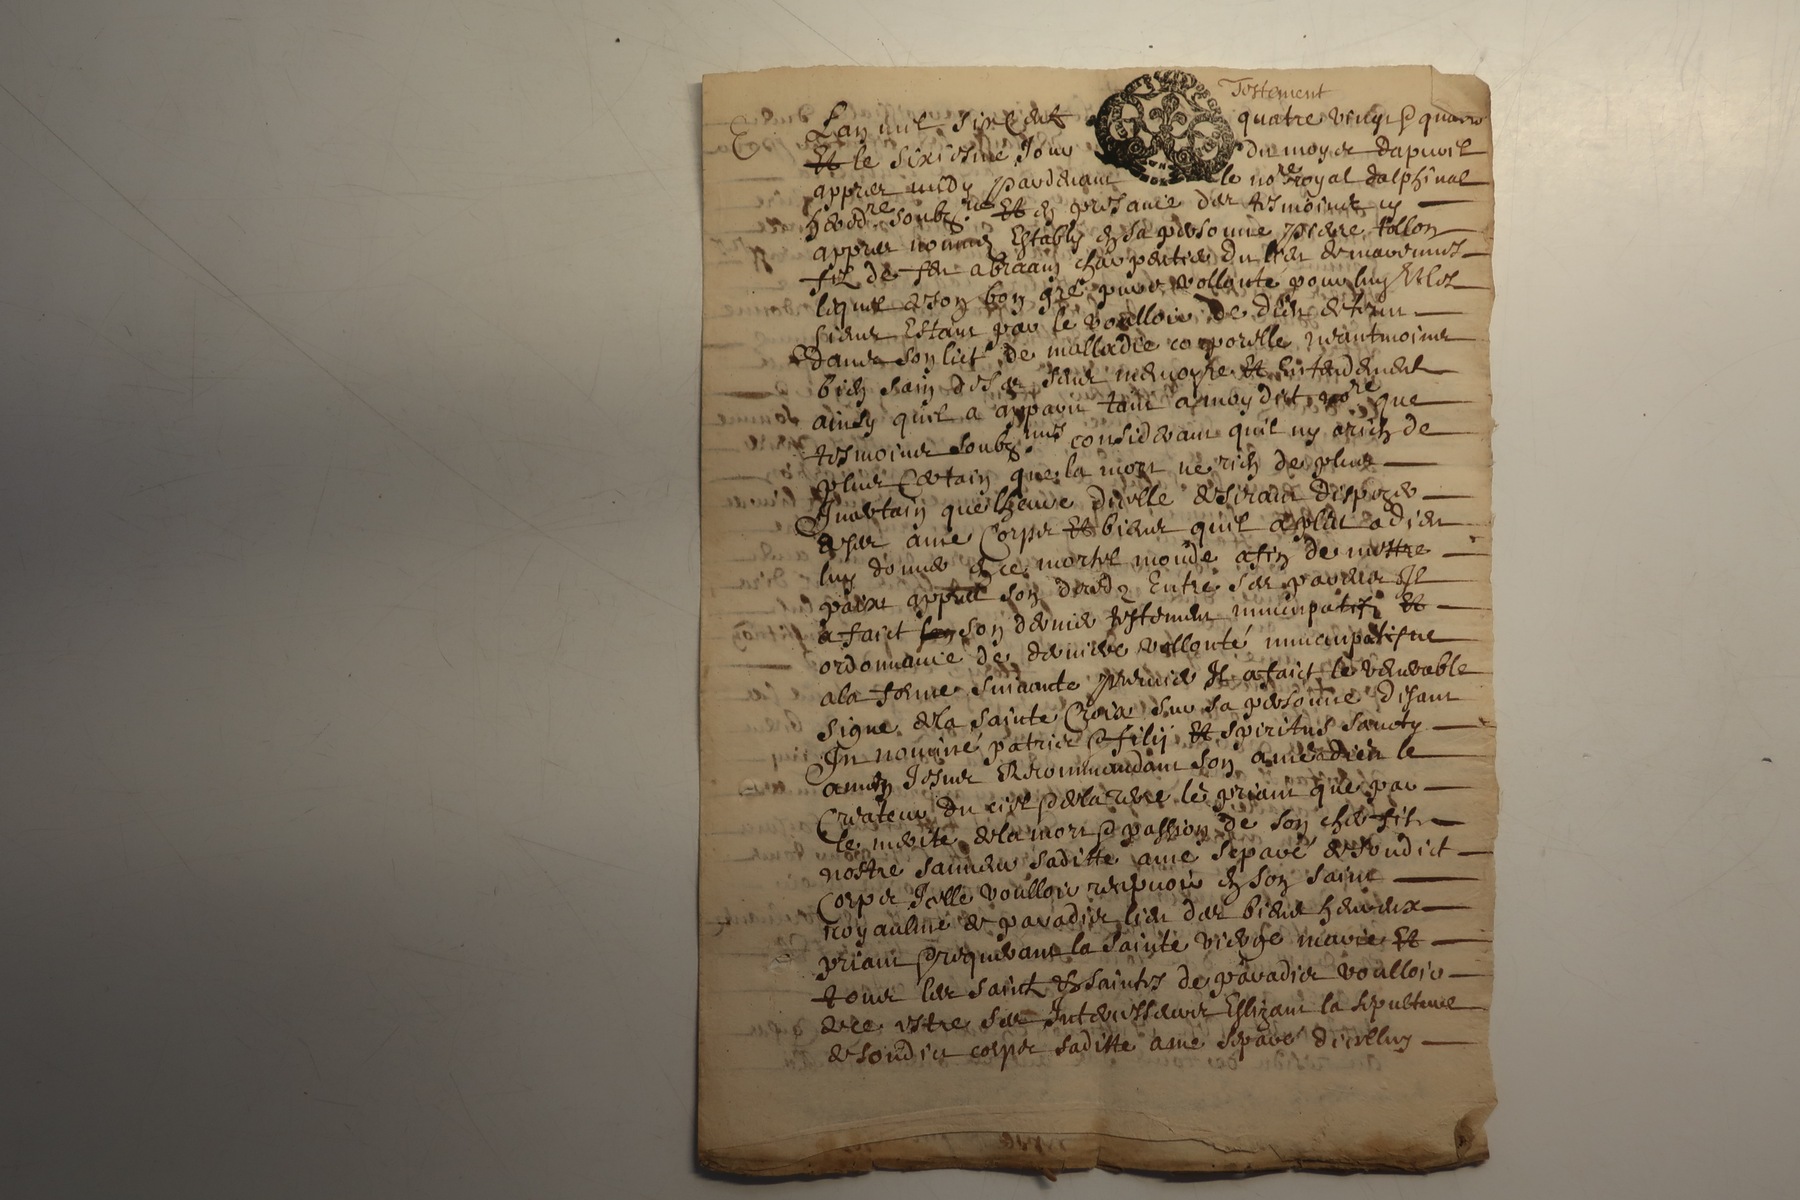 Testement
Lan mil six cent quatre vingt & quatre
Et le sixiesme Jour du moys dapvril
appres midy pardevant le no.re royal dalphinal
heredre soubz.ne Et en presance des tesmoins cy
appres nommes Estably en sa personne pierre tollon
filz de feu abraam charpentier du lieu de
lequel de son bon gré pure vollonté pour luy Et les
siens Estant par le voulloir de dieu detenu
dans son lict de malladie corporelle neantmoins
bien sain de ses sens memoyre Et Entendement
ainsy quil a apparu tant a moydict no.re que
tesmoins soubz.nes considerant quil ny a rien de
plus Certain que la mort ne rien de plus
Incertain que lheure dicelle desirant disposer
de ses ame Corps Et biens quil a pleu a dieu
luy donner en ce mortel monde afin de mettre
paix appres son deces Entre ses parens Il
a faict son dernier testement nuncupatif Et
ordonnance de derniere vollonté nuncupatifve
a la forme suivante premier Il a faict le venerable
signe de la sainte Croix sur sa personne disant
In nomine patris & filij Et spiritus sancty
amen Jesus Recommandant son ame a dieu le
Createur du ciel & de la terre le priant que par
le merite de la mort & passion de son cher filz
nostre sauveur saditte ame separé de sondict
Corps Icelle voulloir recepvoir en son saint
royaulme de paradis lieu des biens heureux
priant & requerant la sainte vierge marie Et
tous les saintz & saintes de paradis voulloir
de ce estre ses Intercesseurs Eslizant la sepulture
de sondict corps saditte ame separé dicelluy